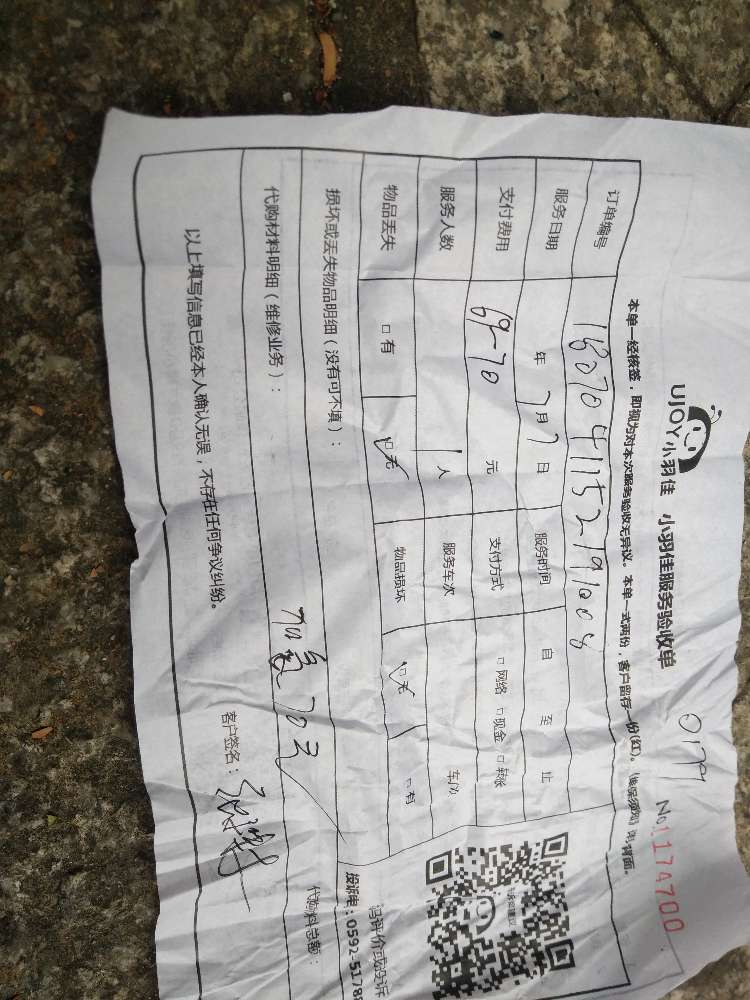 UJOY小羽佳 小羽佳服务验收单
No.1174700
本单一经核签，即视为对本次服务验收无异议。本单一式两份，客户留存一份(红)。(维保须知) 见背面。
订单编号
服务日期 年 7月7日 服务时间 自 至 止
支付费用 69-70 元 支付方式 □网络 □现金 □转帐
服务人数 1人 服务车次 车次
物品丢失 □有 □无 物品损坏 □无 □有
损坏或丢失物品明细（没有可不填）：
代购材料明细（维修业务）： 加氟70元
以上填写信息已经本人确认无误，不存在任何争议纠纷。
客户签名：
码评价或投诉
投诉电：0592-5178